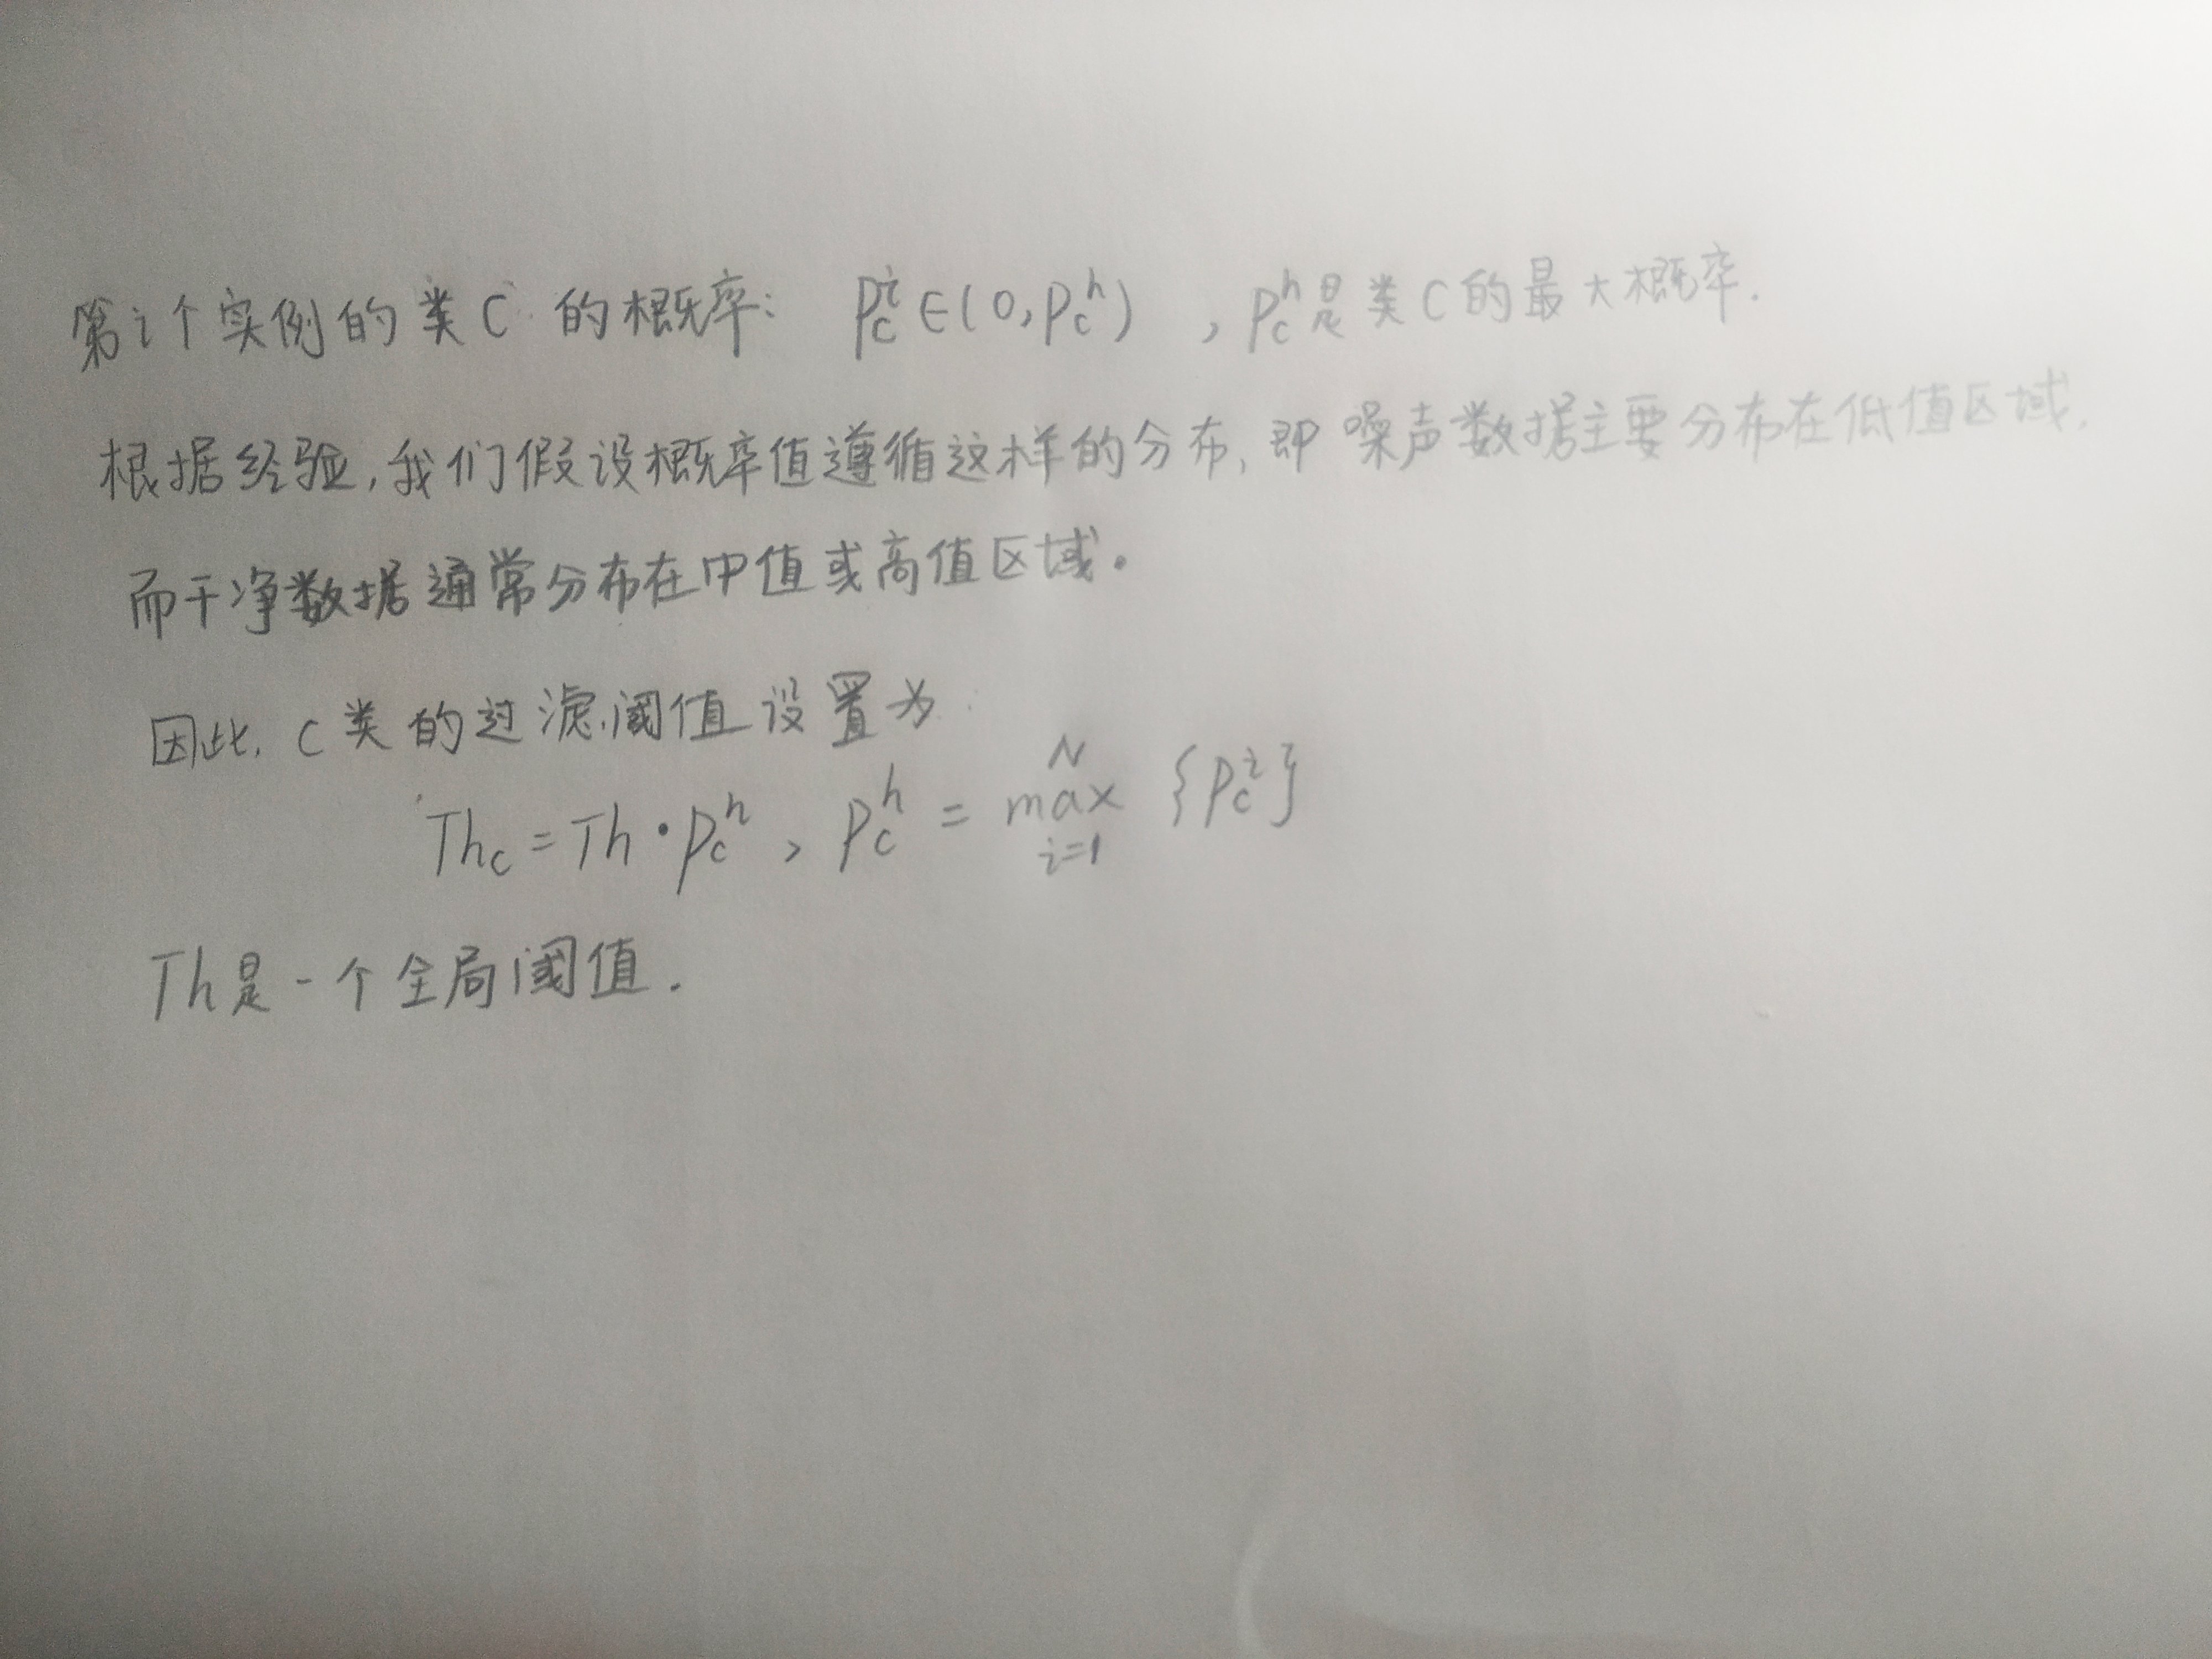 第i个实例的类C的概率: P_c^i ∈(0,P_c^h) , P_c^h是类C的最大概率.
根据经验,我们假设概率值遵循这样的分布,即噪声数据主要分布在低值区域,
而干净数据通常分布在中值或高值区域。
因此, C类的过滤阈值设置为
Th_c = Th·P_c^h , P_c^h = max_{i=1}^N {P_c^i}
Th是一个全局阈值.